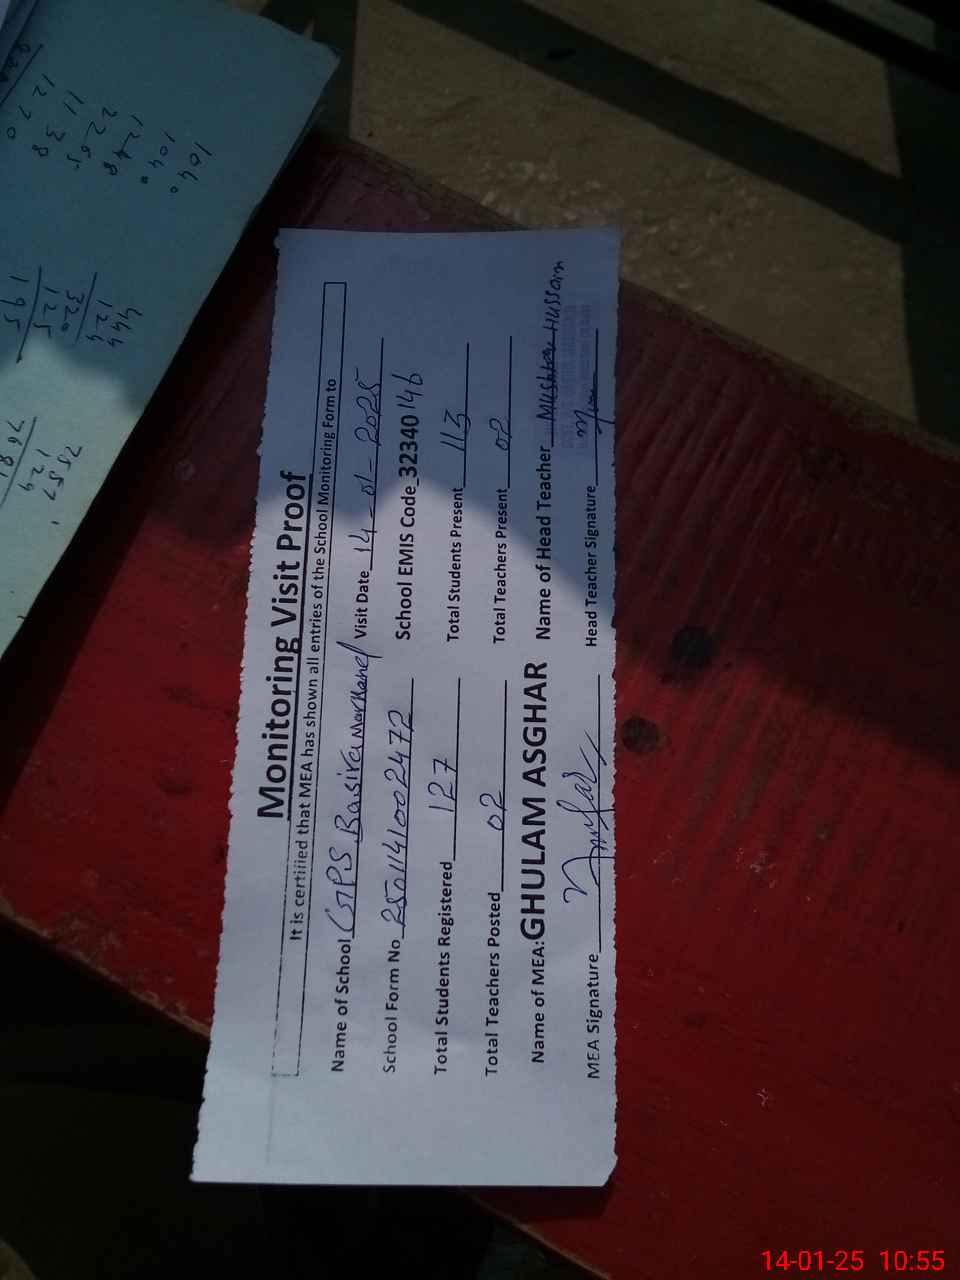 Monitoring Visit Proof
It is certified that MEA has shown all entries of the School Monitoring Form to
Name of School GPS Basira Visit Date 14-01-2025
School Form No 2501141002472 School EMIS Code 32340146
Total Students Registered 127 Total Students Present 113
Total Teachers Posted 02 Total Teachers Present 02
Name of MEA:GHULAM ASGHAR Name of Head Teacher Mushtaq Hussain
MEA Signature Head Teacher Signature
1040
1040
1248
2265
1138
1270
444
124
320
125
195
7557
124
7681
14-01-25 10:55